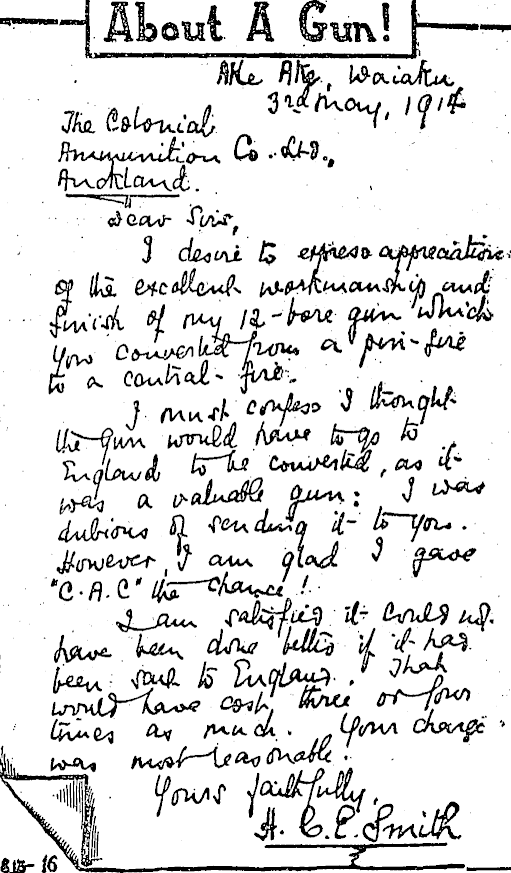 About A Gun!
Ake Ake, Waiuku
3rd May, 1914
The Colonial
Ammunition Co. Ltd.,
Auckland.
Dear Sirs,
I desire to express appreciation
of the excellent workmanship and
finish of my 12-bore gun which
you converted from a pin-fire
to a central-fire.
I must confess I thought
the gun would have to go to
England to be converted, as it
was a valuable gun: I was
dubious of sending it to you.
However, I am glad I gave
"C.A.C" the chance!
I am satisfied it could not
have been done better if it had
been sent to England. That
would have cost three or four
times as much. Your charge
was most reasonable.
Yours faithfully,
H. C. E. Smith
813-16